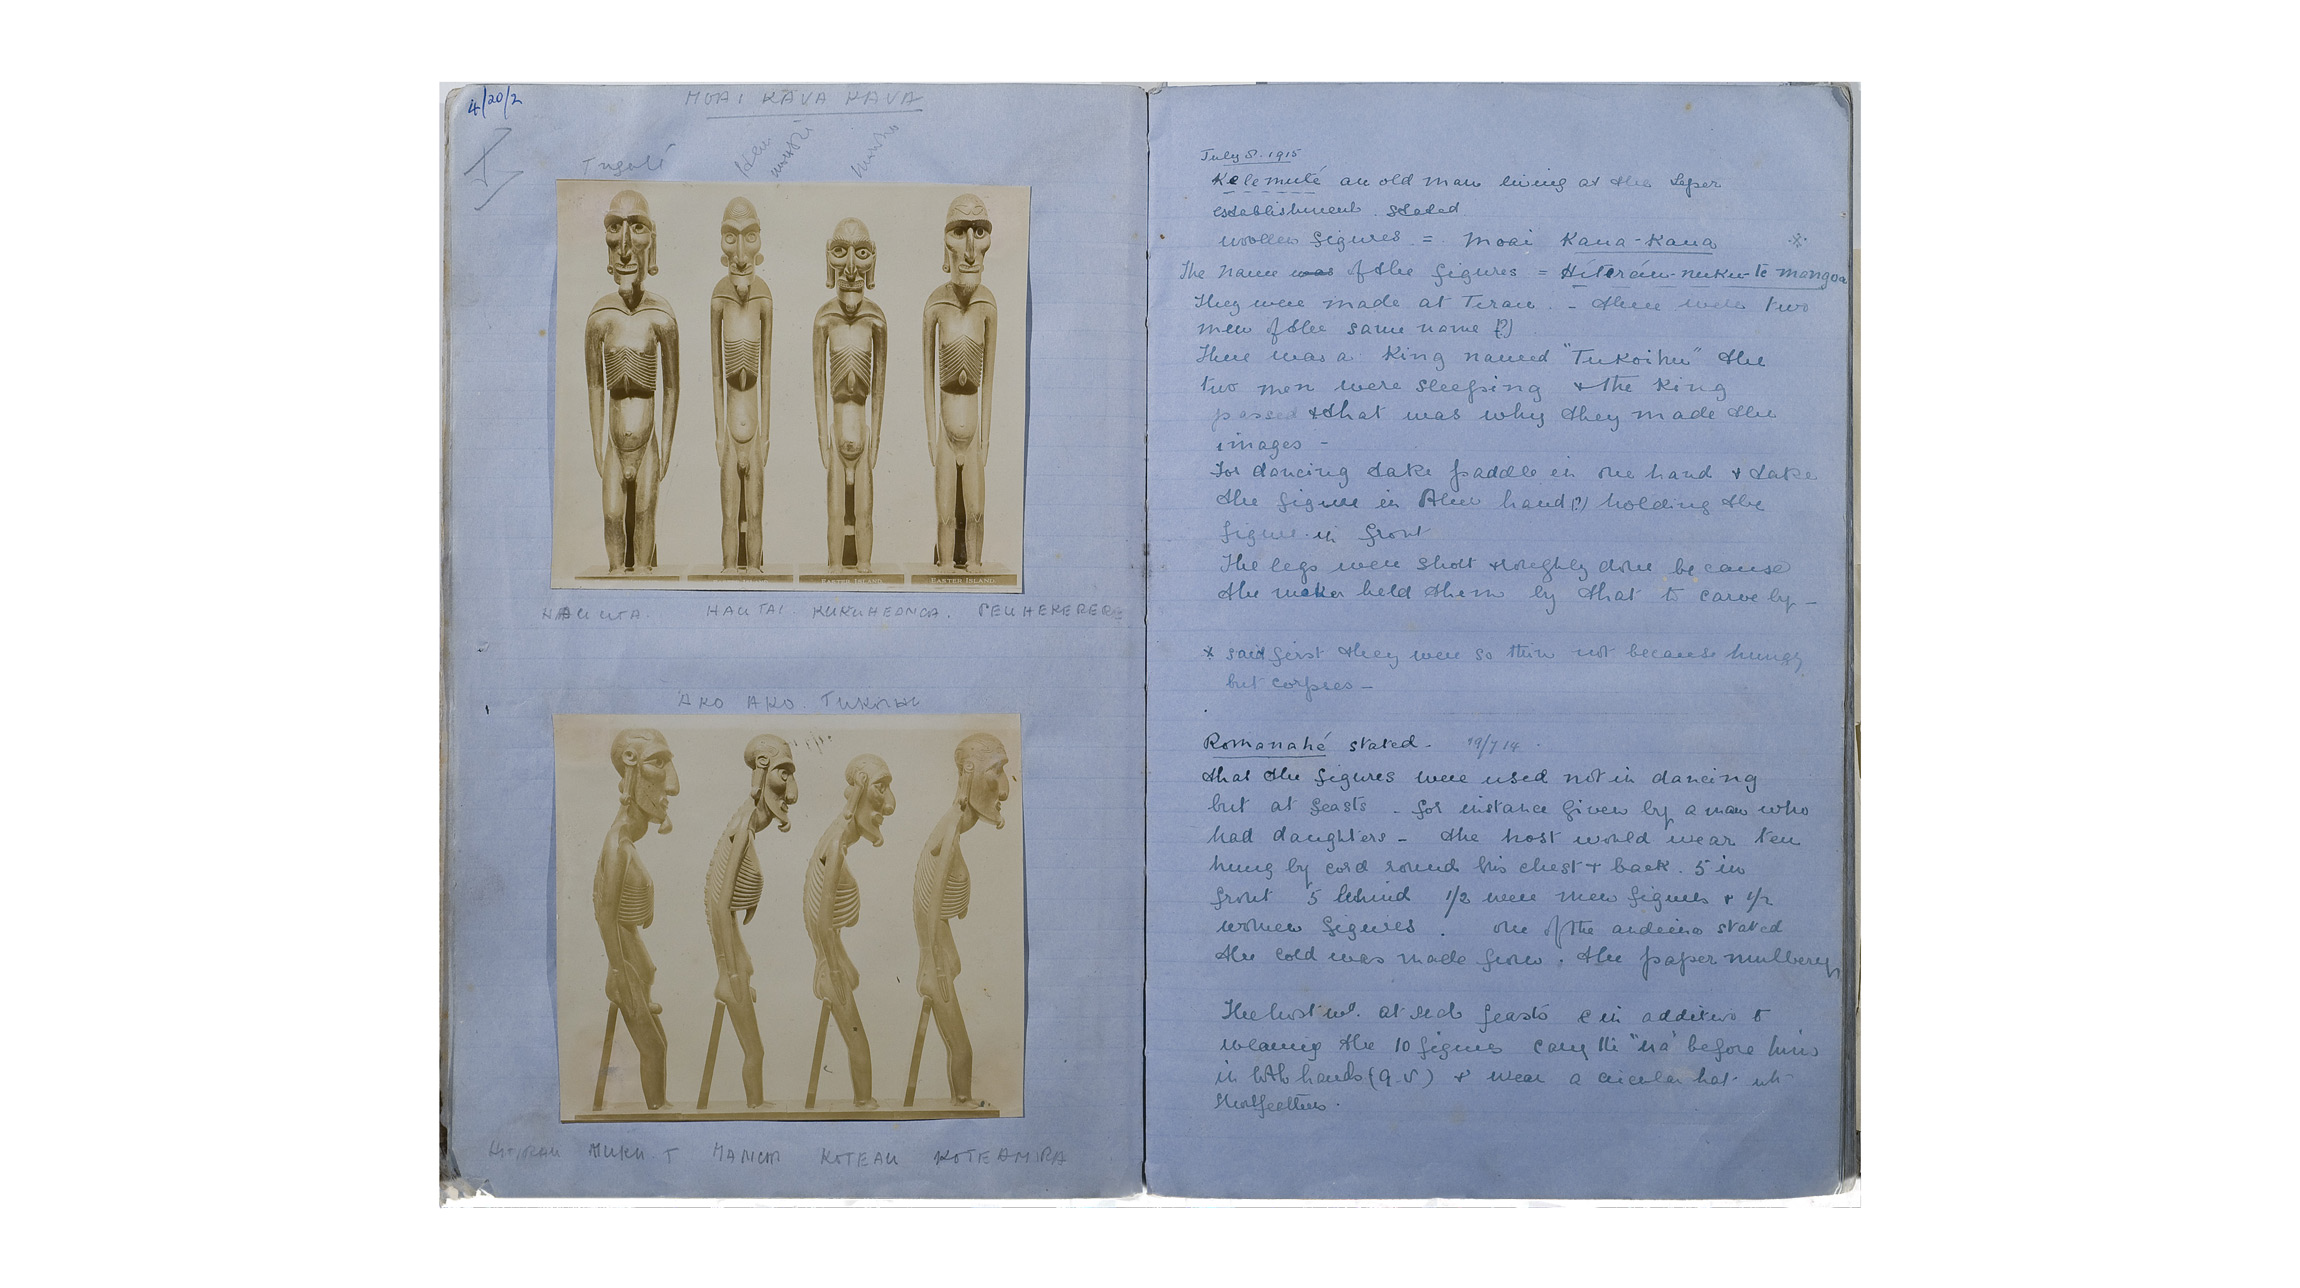 4/20/2
MOAI KAVA KAVA
EASTER ISLAND
EASTER ISLAND
HAUTAI. KUKUHEONGA. PEUHEKERERE
AKO AKO. TUKOIHU
KOTEAU KOTEAMIRA
July 8. 1915
Kelemuté an old man living at the Leper
establishment. stated
wooden figures = moai Kaua-Kaua *
The name was of the figures = Hiteráu-nuku-te mangoa
They were made at Terau. - there were two
men of the same name (?)
There was a King named "Tukoihu" the
two men were sleeping & the King
passed & that was why they made the
images -
For dancing take paddle in one hand & take
the figure in other hand (?) holding the
figure in front
The legs were short & roughly done because
the maker held them by that to carve by -
* said first they were so thin not because hungry
but corpses -
Romanahé stated - 19/7 14.
that the figures were used not in dancing
but at feasts - for instance given by a man who
had daughters - the host would wear ten
hung by cord round his chest & back. 5 in
front 5 behind 1/2 were men figures & 1/2
women figures. one of the audience stated
the cold was made from. the paper mulberry
The host wd. at such feasts in addition to
wearing the 10 figures carry the "ua" before him
in both hands (q.v.) & wear a circular hat